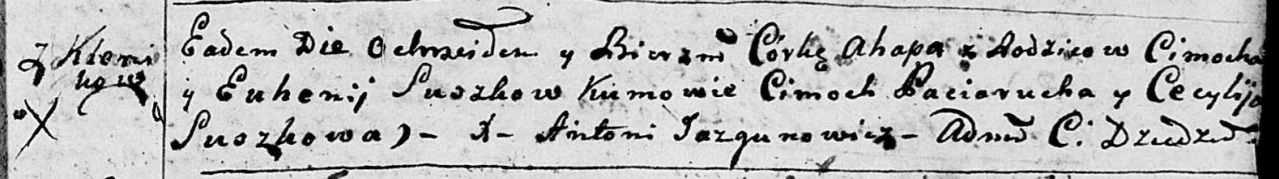 z Kleni
kow
X
Eadem Die Ochrzciłem y Bierzm Córkę Ahapa z Rodzicow Cimocha
y Euhenij Suszkow Kumowie Cimoch Paciarucha y Cecylija
Suszkowa) - X - Antoni Jazgunowicz - Adm C.